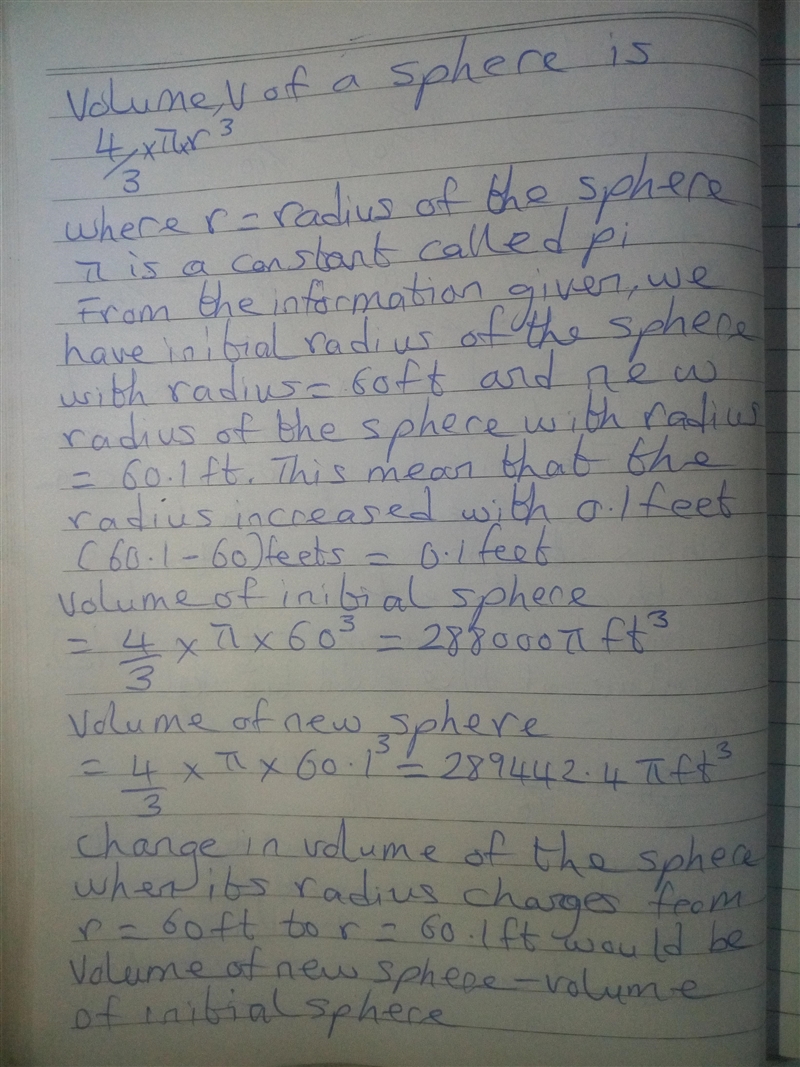 Volume, V of a sphere is
4/3 × π × r³
where r = radius of the sphere
π is a constant called pi
From the information given, we
have initial radius of the sphere
with radius = 60ft and new
radius of the sphere with radius
= 60.1ft. This mean that the
radius increased with 0.1 feet
(60.1 - 60)feets = 0.1 feet
Volume of initial sphere
= 4/3 × π × 60³ = 288000π ft³
Volume of new sphere
= 4/3 × π × 60.1³ = 289442.4π ft³
Change in volume of the sphere
when its radius changes from
r = 60ft to r = 60.1ft would be
Volume of new sphere - volume
of initial sphere